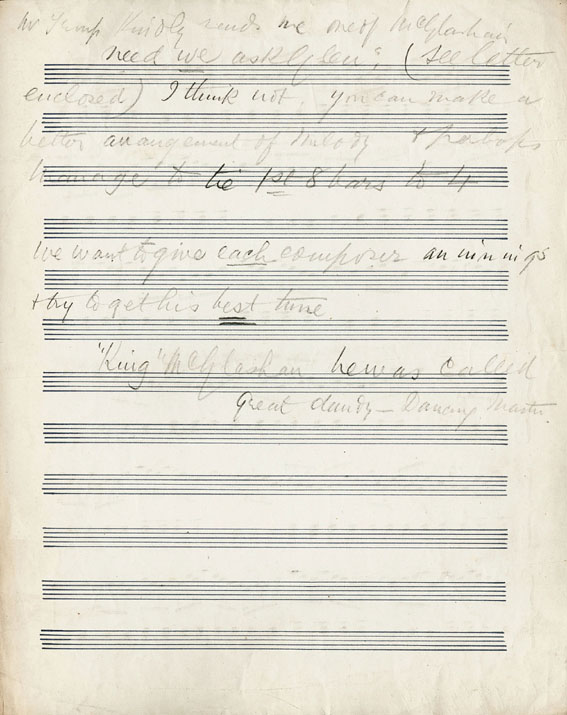 Kindly sends me one of McGlashan
need we ask Glen? (see letter
enclosed) I think not. you can make a
better arrangement of Melody & perhaps
Manage to tie 1st 8 bars to 4
we want to give each composer an innings
& try to get his best tune
"King" McGlashan he was called
Great dandy — Dancing Master